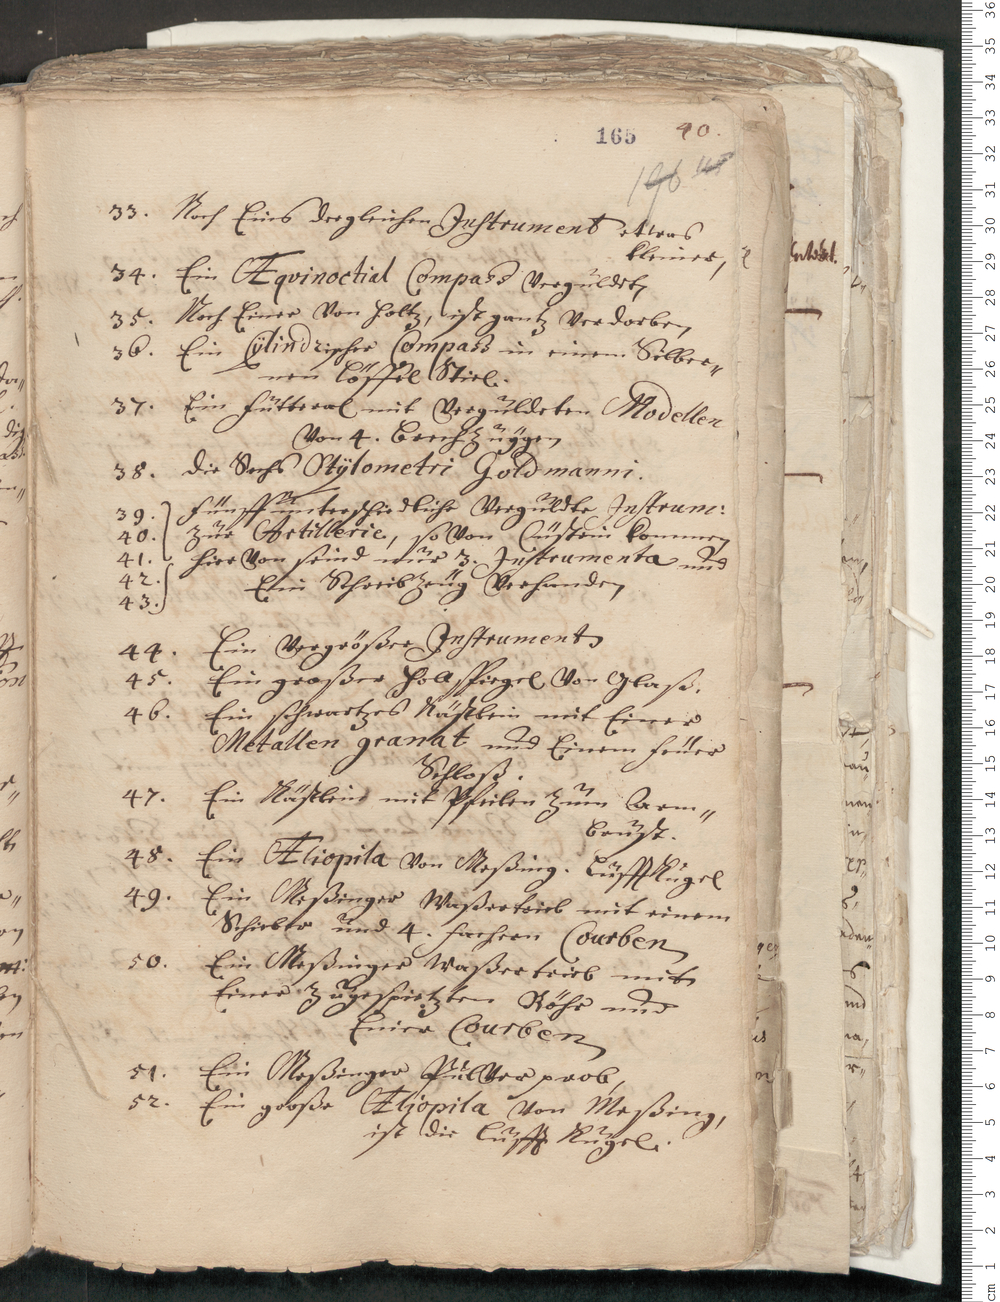 165 40.
33. Noch Eins dergleichen Instrument etwas
kleiner,
34. Ein Æqvinoctial Compass Verguldet,
35. Noch Einer Von Holtz, ist gantz Verdorben,
36. Ein Cÿlindrischer Compass in einem Silber=
nen Löffel Stiel.
37. Ein Futteral mit Verguldeten Modellen
Von 4. Brechzeügen,
38. die Sechs Stÿlometri Goldmanni.
39. Fünff unterschiedliche Verguldte Instrum:
40. zur Artillerie, so Von Cüstrin kommen,
41. hier Von seind nur 3. Instrumenta und
42. Ein Schreibzeüg Verhanden,
43.
44. Ein Vergrößer Instrument,
45. Ein großer Holspiegel Von Glaß.
46. Ein schwartzes Kästlein mit Einer
Metallen granat und Einem feüer
Schloß.
47. Ein Kästlein mit Pfeilen zum Arm=
brust.
48. Ein Æliopila Von Meßing. Lufft Kugel
49. Ein Meßinger Waßertrieb mit einem
Schieber und 4. fachern Courben,
50. Ein Meßinger Waßertrieb mit
Einer zugespietzten Röhr und
Einer Courben,
51. Ein Meßinger Pulver prob,
52. Ein große Æliopila Von Meßing,
ist die Lufft Kugel.